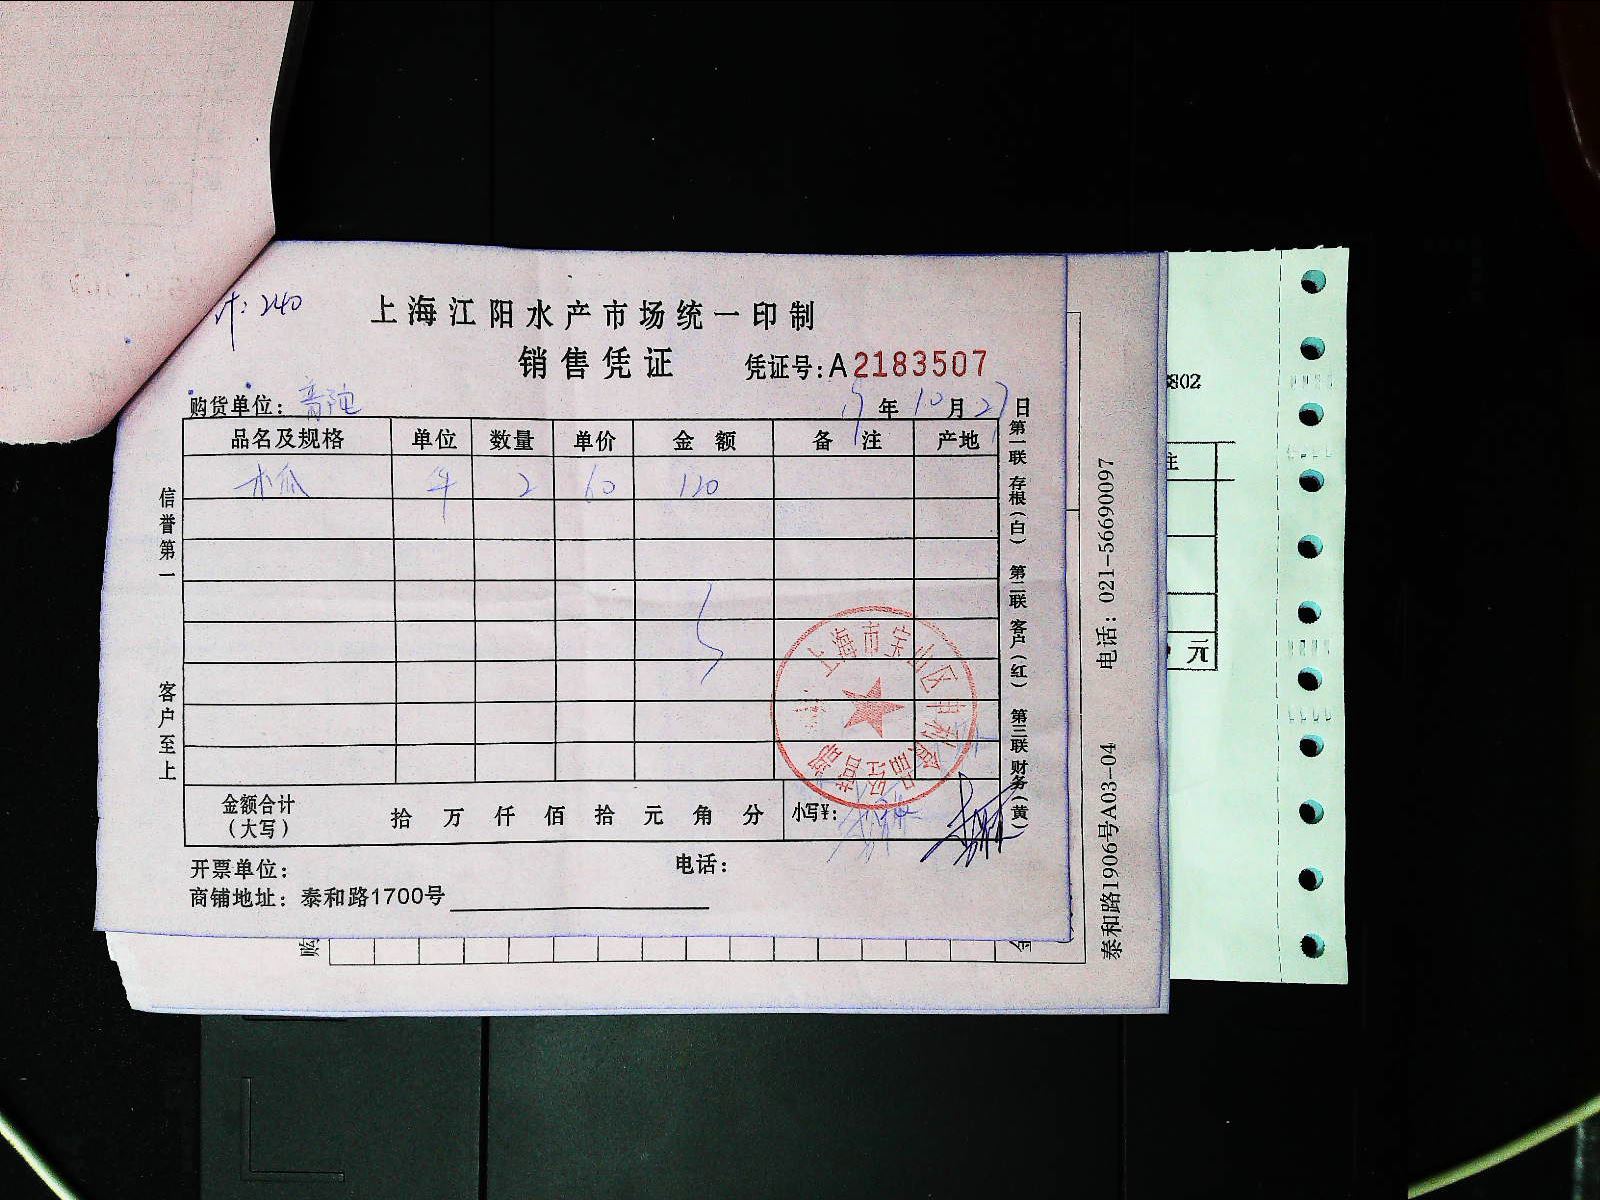 计:240
上海江阳水产市场统一印制
销售凭证 凭证号:A2183507
购货单位: 年 10 月 27 日
品名及规格 单位 数量 单价 金额 备注 产地
木瓜 件 2 60 120
金额合计(大写) 拾 万 仟 佰 拾 元 角 分 小写¥:
开票单位: 电话:
商铺地址:泰和路1700号
信誉第一 客户至上
第一联 存根(白) 第二联 客户(红) 第三联 财务(黄)
上海市宝山区
泰和路1906号A03-04 电话:021-56690097
购
金
802
注
元